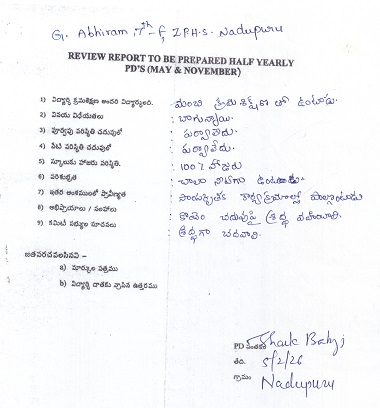 G. Abhiram 7th-F, Z.P.H.S. Nadupuru
REVIEW REPORT TO BE PREPARED HALF YEARLY
PD'S (MAY & NOVEMBER)
1) విద్యార్ధి క్రమశిక్షణ అందరి విద్యార్ధులందు. - మంచి క్రమశిక్షణ తో ఉంటాడు.
2) విషయ విధేయతలు : బాగున్నాయి.
3) పూర్వపు పరిస్థితి చదువులో : పర్వాలేదు.
4) నేటి పరిస్థితి చదువులో : పర్వాలేదు.
5) స్కూలుకు హాజరు పరిస్థితి. : 100% హాజరు
6) పరిశుభ్రత : చాలా నీట్‌గా ఉంటాడు.
7) ఇతర అంశములలో ప్రావీణ్యత : సాంస్కృతిక కార్యక్రమాల్లో పాల్గొంటాడు
8) అభిప్రాయాలు / సలహాలు : కొంచెం చదువుపై శ్రద్ధ వహించాలి.
9) కమిటీ సభ్యుల సూచనలు : శ్రద్ధగా చదవాలి.
జతపరచవలసినవి -
a) మార్కుల పత్రము
b) విద్యార్ధి దాతకు వ్రాసిన ఉత్తరము
PD సంతకం Shaik Babji
తేది. 5/2/26
గ్రామం Nadupuru